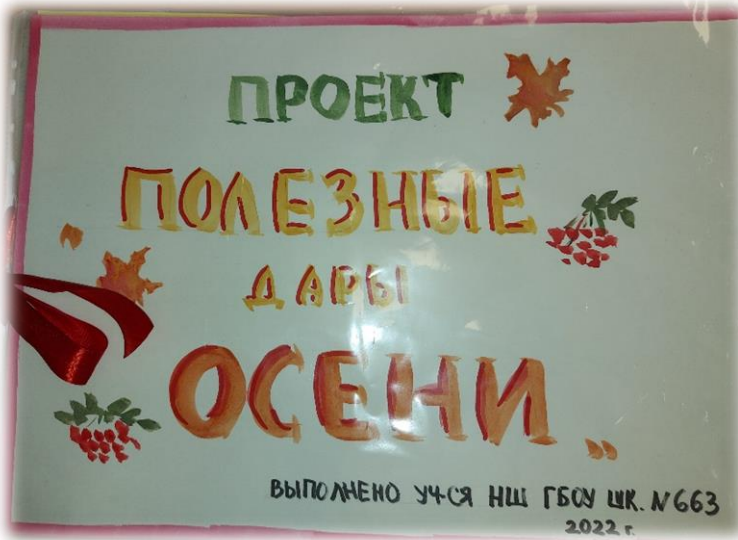 ПРОЕКТ
„ПОЛЕЗНЫЕ
ДАРЫ
ОСЕНИ"
ВЫПОЛНЕНО УЧ-СЯ НШ ГБОУ ШК. N663
2022 г.